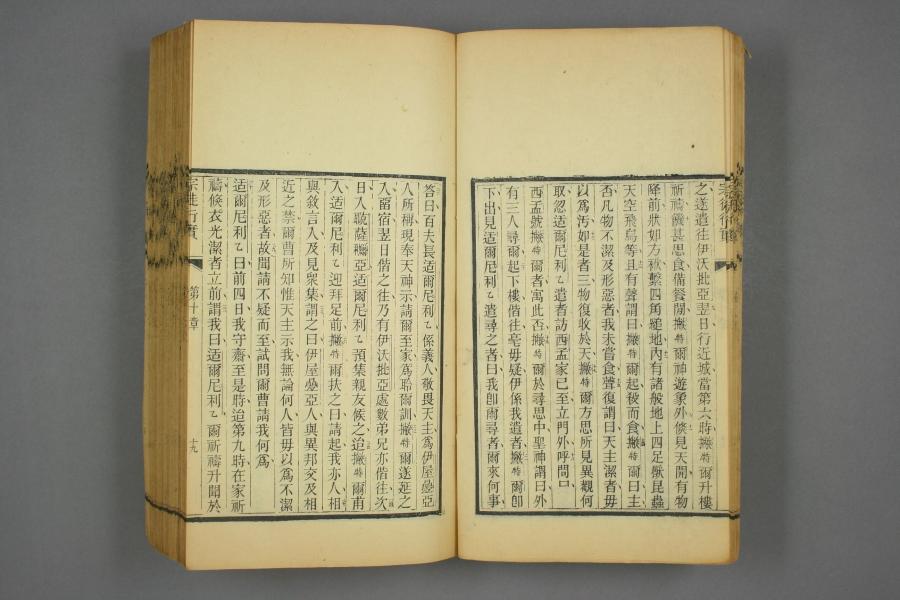 之遂遣往伊沃批亞翌日行近城當第六時撇特爾升樓
祈禱饑甚思食備餐間撇特爾神遊象外倏見天開有物
降前狀如方袱繫四角縋地內有諸般地上四足獸昆蟲
天空飛鳥等且有聲謂曰撇特爾起殺而食撇特爾曰主
否凡物不潔及形惡者我未嘗食聲復謂曰天主潔者毋
以為污如是者三物復收於天撇特爾方思所見異觀何
取忽适爾尼利乙遣者訪西孟家已至立門外呼問曰
西孟號撇特爾者寓此否撇特爾於尋思中聖神謂曰外
有三人尋爾起下樓偕往毋疑伊係我遣者撇特爾卽
下出見适爾尼利乙遣尋之者曰我卽爾尋者爾來何事
答曰百夫長适爾尼利乙係義人敬畏天主為伊屋疊亞
人所稱現奉天神示請爾至家為聆爾訓撇特爾遂延之
入留宿翌日偕之往乃有伊沃批亞處數弟兄亦偕往次
日入適薩利亞适爾尼利乙預集親友候之迨撇特爾甫
入适爾尼利乙迎拜足前撇特爾扶之曰請起我亦人相
與敘言入及見眾集謂之曰伊屋疊亞人與異邦交及相
近之禁爾曹所知惟天主示我無論何人皆毋以為不潔
及形惡者故聞請不疑而至試問爾曹請我何為
适爾尼利乙曰前四日我守齋至是時迨第九時在家祈
禱倏衣光潔者立前謂我曰适爾尼利乙爾祈禱升聞於
宗徒行實
第十章
十九